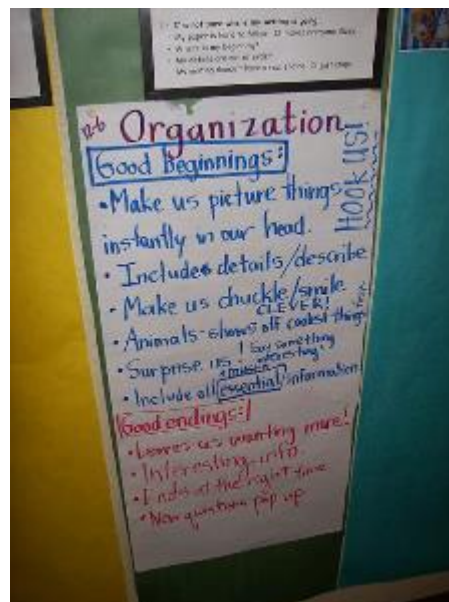 My paper is hard to follow.
Where is my beginning?
12-6 Organization
Good beginnings:
HOOK US!
• Make us picture things
instantly in our head.
• Includes details/describe
• Make us chuckle/smile
CLEVER!
• Animals-shows off coolest things
• Surprise us! Say something
interesting
• Include all essential information
Good endings:
• Leaves us wanting more!
• Interesting info
• Ends at the right time
• New questions pop up